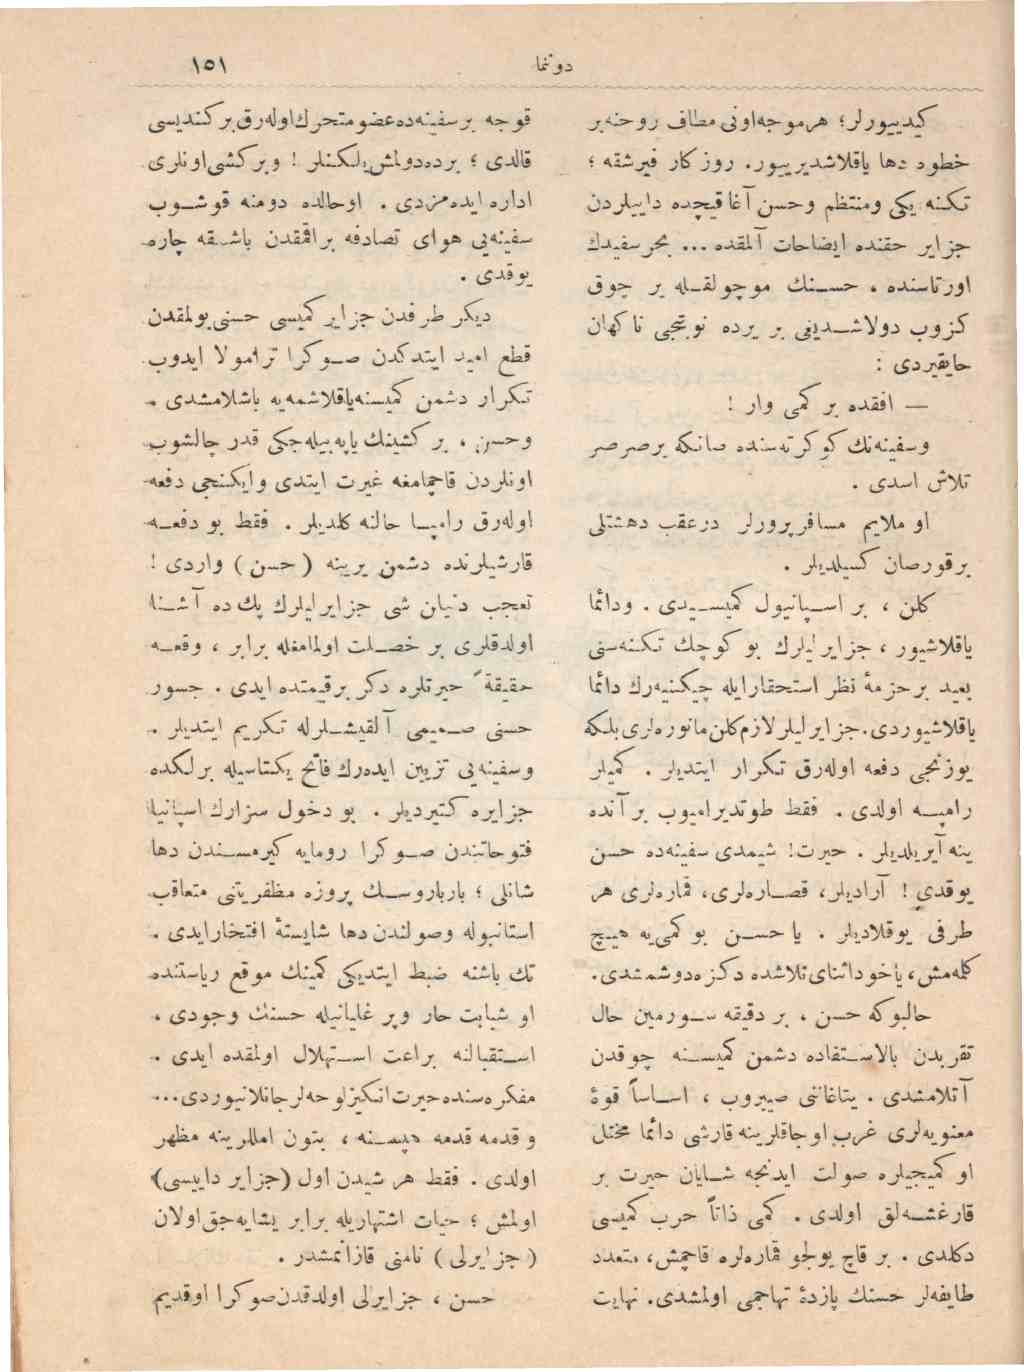 دوتنما
١٥١
كيدييورلر؛ هرموجه‌اونی مطاف روحنه‌بر
خطوه دها ياقلاشديرييور. روزكار فيرشقه ؛
تكنه يكی ومنتظم وحسن آغا قيچده داييلردن
جزاير حقنده ايضاحات آلمقده ... بحر سفيدك
اورتاسنده ، حسنك موچولقله ير چوق
كزوب دولاشديغی بر يرده نوبتجی ناكهان
حايقيردی :
— افقده بر كمی وار !
وسفينه‌نك كوكرته‌سنده صانكه برصرصر
تلاش اسدی .
او ملايم مسافرپرورلر درعقب دهشتلی
برقورصان كسيلديلر .
كلن ، بر اسپانيول كميسيدی . ودائما
ياقلاشيور ، جزايرليلرك بو كوچك تكنه‌سنی
بعيد برحزمۀ نظر استحقارايله چيكنيه‌رك دائما
ياقلاشيوردی. جزايرليلر لازم‌كلن مانوره‌لری بلكه
يوزنجی دفعه اوله‌رق تكرار ايتديلر . كميلر
رامپه اولدی . فقط طوتديراميوب برآنده
ينه آيريلديلر . حيرت! شيمدی سفينه‌ده حسن
يوقدی ! آراديلر، قصاره‌لری، قماره‌لری هر
طرفی يوقلاديلر . يا حسن بو كمی‌يه هيچ
كلمه‌مش، ياخوداثنای تلاشده دكزه‌دوشمشدی.
حالبوكه حسن ، بر دقيقه سورمين حال
تقربدن بالاستفاده دشمن كميسنه چوقدن
آتلامشدی . يتاغاننی صيروب ، اساساً قوۀ
معنويه‌لری غرب اوجاقلرينه قارشی دائما مختل
او كميجيلره صولت ايدنجه شايان حيرت بر
قارغشه‌لق اولدی . كمی ذاتاً حرب كميسی
دكلدی . بر قاچ يولجو قماره‌لره قاچمش، متعدد
طايفه‌لر حسنك پازدۀ تهاجمی اولمشدی. نهايت
قوجه برسفينه‌ده‌عضومتحرك‌اوله‌رق‌بركنديسی
قالدی ؛ برده‌دولمش‌يلكنلر ! وبركشی‌اونلری
اداره ايده‌مزدی . اوحالده دومنه قوشوب
سفينه‌يی هوای تصادفه براقمقدن باشقه چاره
يوقدی .
ديكر طرفدن جزاير كميسی حسنی‌بولمقدن
قطع اميد ايتدكدن صوكرا تراموלا ايدوب
تكرار دشمن كميسنه‌ياقلاشمه‌يه باشلامشدی .
وحسن ، بر كشينك ياپه‌بيله‌جكی قدر چالشوب
اونلردن قاچمامغه غيرت ايتدی وايكنجی دفعه
اوله‌رق رامپا حالنه كلديلر . فقط بو دفعه
قارشيلرنده دشمن يرينه (حسن) واردی !
تعجب دنيلن شی جزايرليلرك پك ده آشنا
اولدقلری بر خصلت اولمامغله برابر ، وقعه
حقيقةً حيرتلره دكر برقيمتده ايدی . جسور
حسنی صميمی آلقيشلرله تكريم ايتديلر .
وسفينه‌يی تزيين ايده‌رك فاتح يكتاسيله برلكده
جزايره كتيرديلر . بو دخول سزارك اسپانيا
فتوحاتندن صوكرا رومايه كيرمسندن دها
شانلی ؛ بارباروسك پروزه مظفريتنی متعاقب
استانبوله وصولندن دها شايستۀ افتخارايدی .
تك باشنه ضبط ايتديكی كمينك موقع رياستنده
او شبابت حار وپر غليانيله حسنك وجودی ،
استقبالنه براعت استهلال اولمقده ايدی .
مفكره‌سنده حيرت‌انكيزلوحه‌لرجانلانيوردی...
و قدمه قدمه هپسنه ، بتون امللرينه مظهر
اولدی . فقط هر شيدن اول (جزاير داييسی)
اولمش ؛ حيات اشتهاريله برابر يشايه‌جق‌اولان
(جزايرلی) نامنی قازانمشدر .
حسن ، جزايرلی اولدقدن‌صوكرا اوقديم